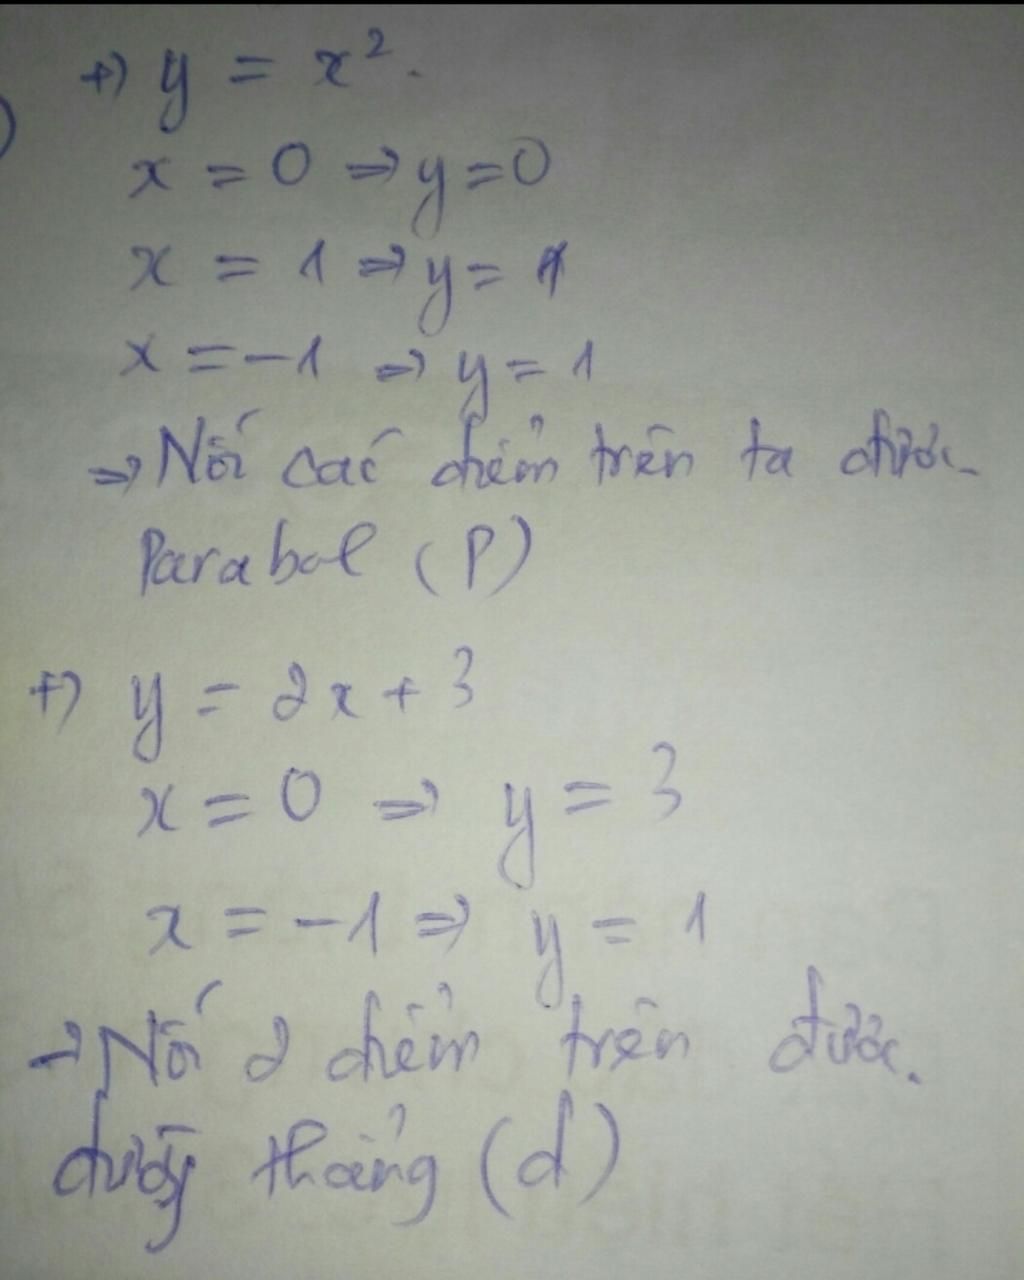 +) y = x².
)
x = 0 ⇒ y = 0
x = 1 ⇒ y = 1
x = -1 ⇒ y = 1
⇒ Nối các điểm trên ta được
Parabol (P)
+) y = 2x + 3
x = 0 ⇒ y = 3
x = -1 ⇒ y = 1
→ Nối 2 điểm trên được.
đường thẳng (d)